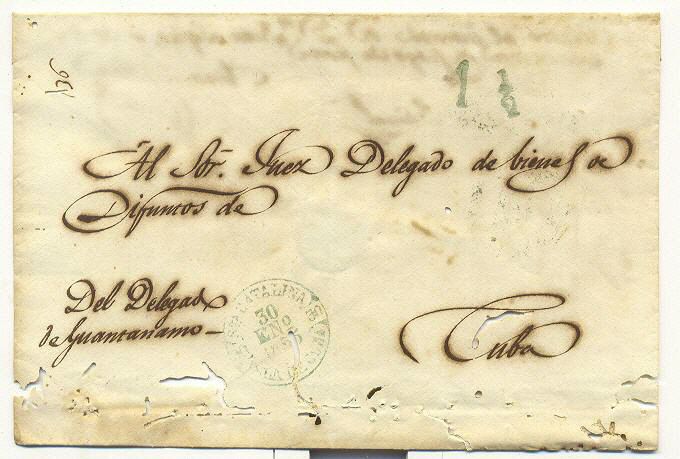 136
1 1/2
Al Sor. Juez Delegado de bienes de
Difuntos de
Del Delegado
de Guantanamo
Cuba
CATALINA
30
ENO